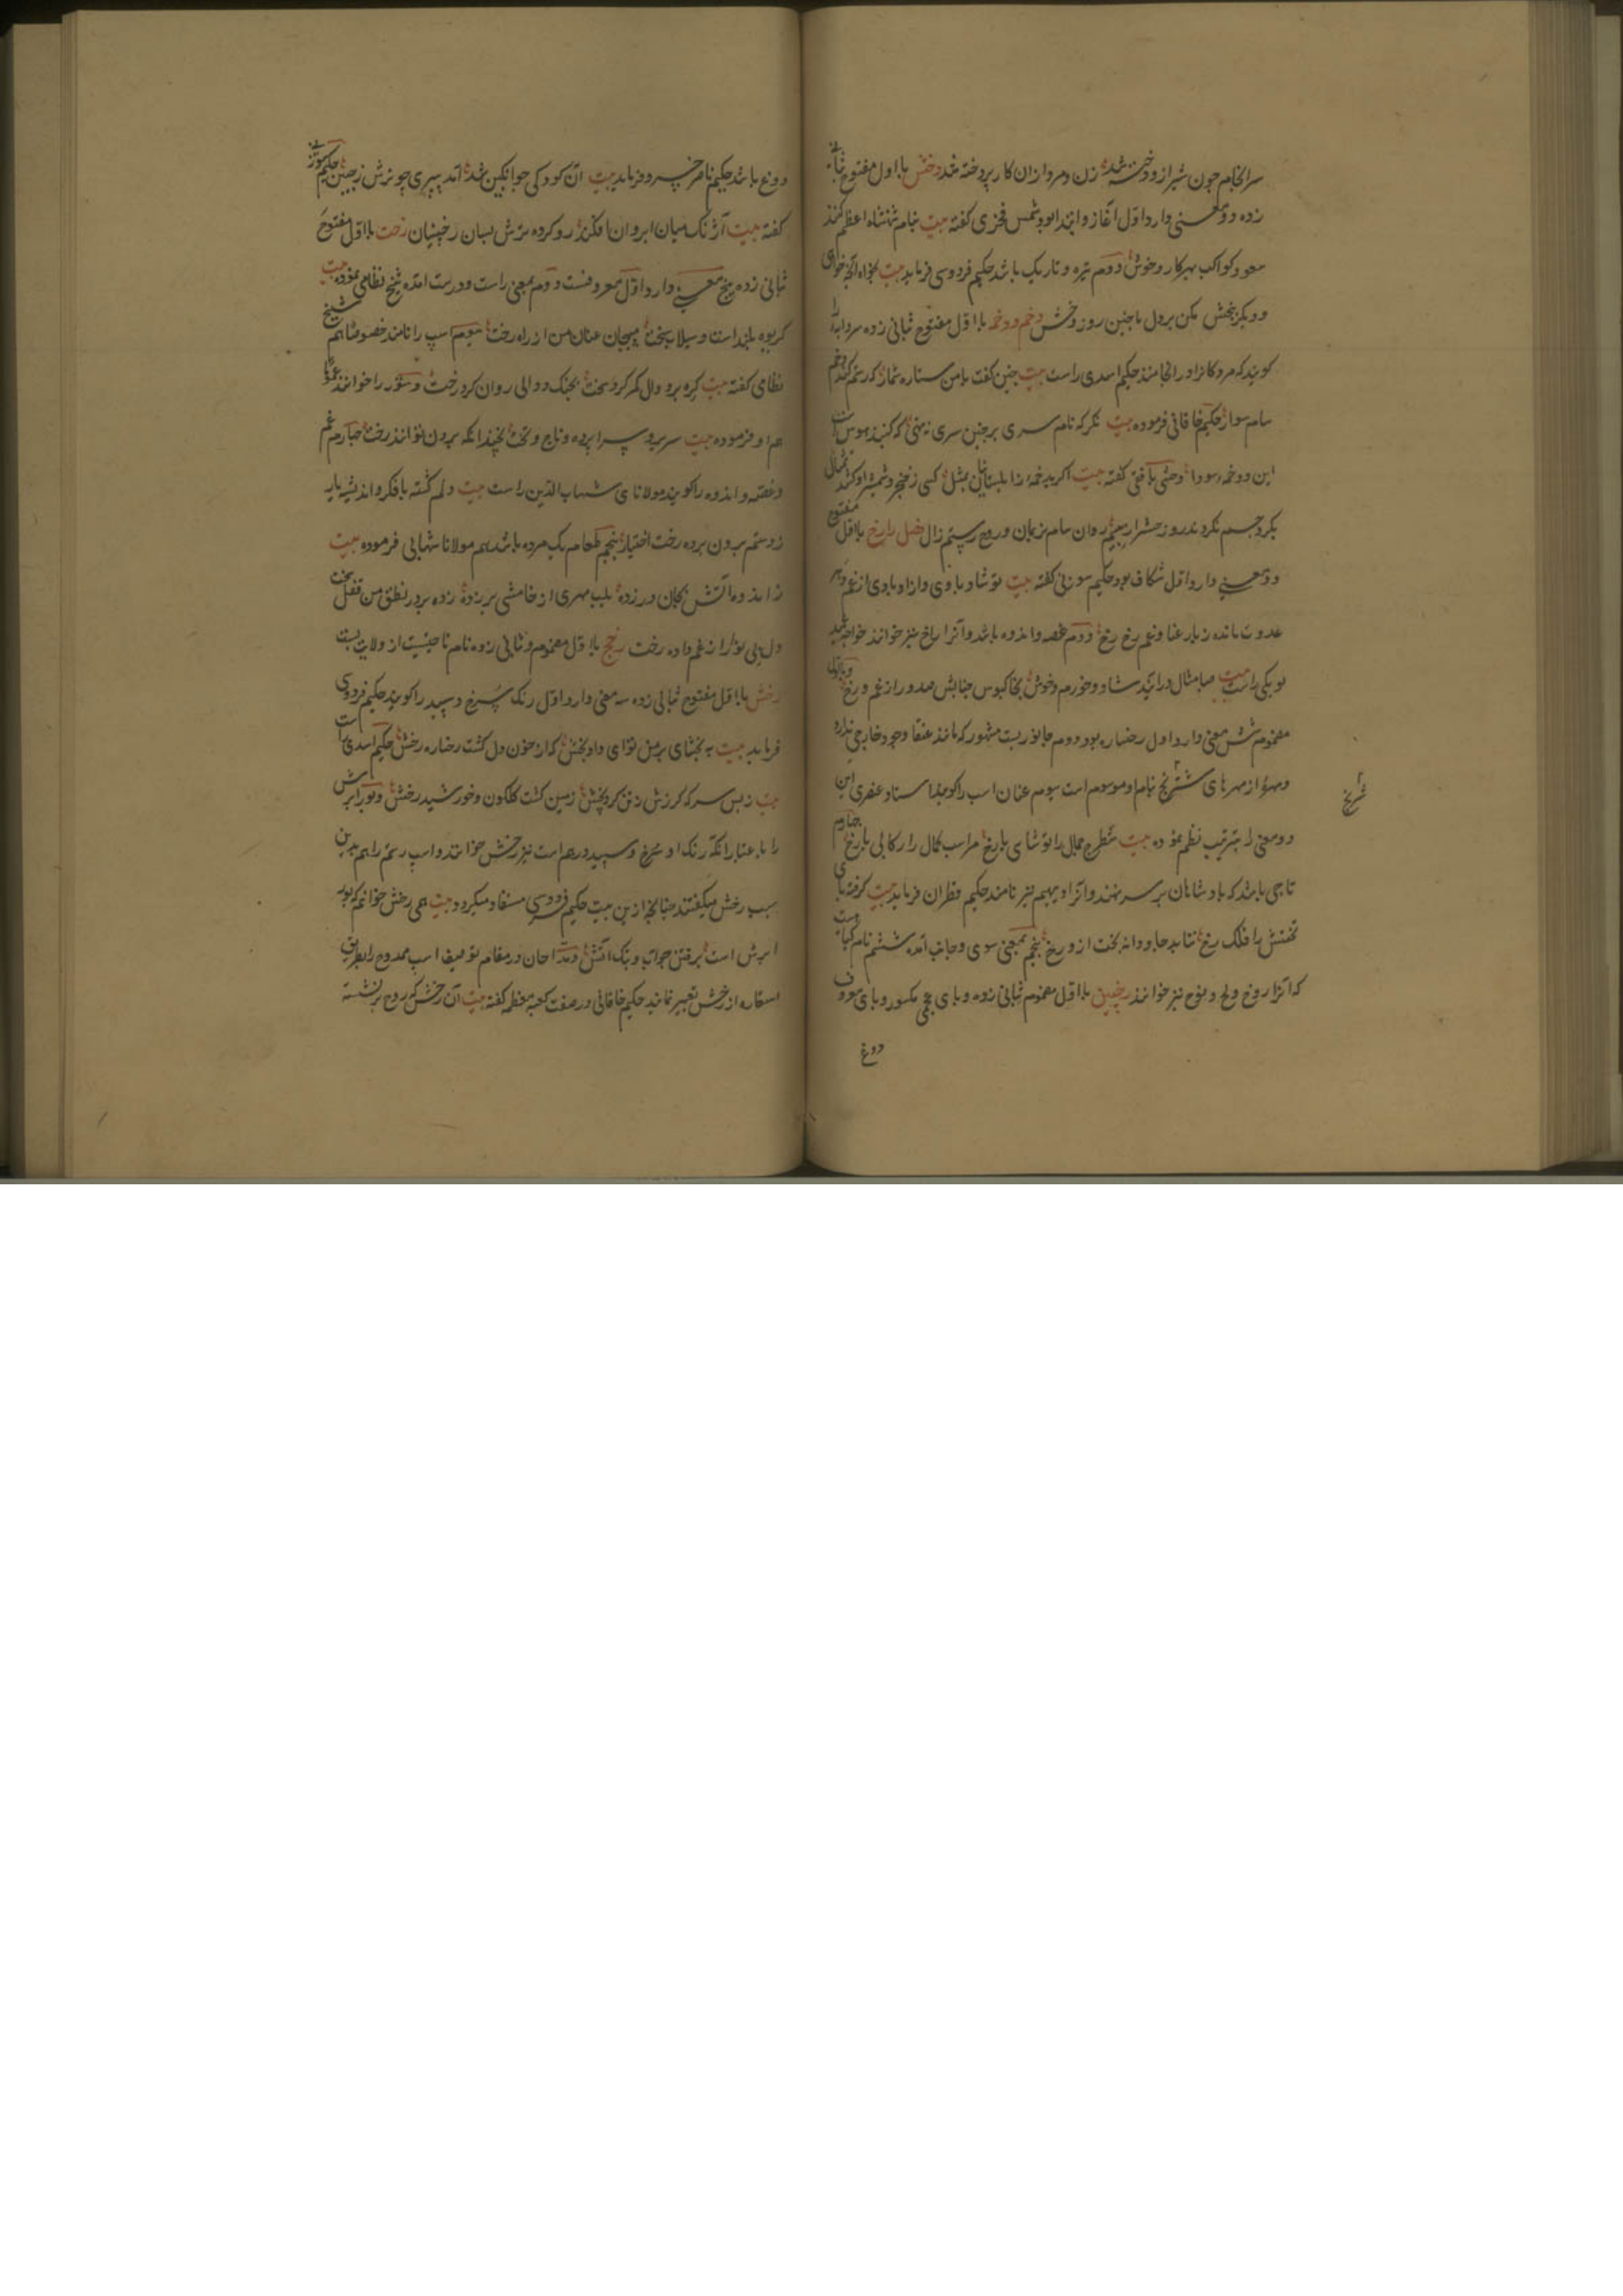 سرانجام چون شیر ازو دخته شد زن و مرد ازان کار پردخته شد دخش با اول مفتوح بثانی
زده دو معنی دارد اول آغاز و ابتدا بود شمس فخری گفته بیت بنام شهنشاه اعظم کنند
سعود کواکب بهر کار دخش دوم تیره و تاریک باشد حکیم فردوسی فرماید بیت
مکن بر دل ما چنین روز دخش دخم و دخمه با اول مفتوح بثانی زده سردابه را
گویند که مردگانرا در آنجا نهند حکیم اسدی راست بیت چنین گفت با من ستاره شمار که رستم کند دخم
سام سوار حکیم خاقانی فرموده بیت نگر که نام سری بر چنین سری ننهی که گنبد هوس است
این و دخمه سودا وحشی بافقی گفته بیت
بگرد جسم نگردند روز حشر ز بیم روان سام نریمان و روح رستم زال فصل را رخ با اول مفتوح
دو معنی دارد اول شکاف بود حکیم سوزنی گفته بیت تو شاد بادی و ازاد بادی از غم دهر
عدوت مانده ز بار عنا و غم رخ رخ دوم غصه و اندوه باشد و آنرا راخ نیز خوانند خواجه عمید
لوبکی راست بیت صبا مثال درآید شاد و خورم و خوش جنابش صدور از غم و رخ و با اول
مضموم شش معنی دارد اول رخساره بود دوم جانوریست مشهور که مانند عنقا وجود خارجی ندارد
و مهرهٔ از مهرهای شترنج بنام او موسوم است سیوم عنان اسپ را گویند استاد عنصری این
دو معنی را بترتیب نظم نموده بیت شطرنج کمال را تو شاهی یا رخ مر اسپ کمال را رکابی یا رخ چهارم
تاجی باشد که پادشاهان بر سر نهند و آنرا دیهیم نیز نامند حکیم قطران فرماید بیت گرفته پای
تختش را فلک رخ نتابد جاودانه بخت ازو رخ پنجم بمعنی سوی و جانب آمده ششم نام گیاهیست
که آنرا روخ و لخ و لوخ نیز خوانند رخپین با اول مضموم بثانی زده و بای عجمی مکسور و یای معروف
شترنج
دوغ
دوغ باشد حکیم ناصر خسرو فرماید بیت آن کودکی چو انگبین شد آمد پیری چو ترش رخپین حکیم سوزنی
گفته بیت آژنگ میان ابروان افکنده رو کرده ترش بسان رخپینان رخت با اول مفتوح
بثانی زده پنج معنی دارد اول معروفست دوم بمعنی راست و درست آمده شیخ نظامی نموده بیت
کریوه بلند است و سیلاب سخت مپیچان عنان من از راه رخت سیوم اسپ را نامند خصوصا هم شیخ
نظامی گفته بیت گره بر دوال کمر کرد سخت بجنگ دوالی روان کرد رخت و ستور را خوانند عموما
هم او فرموده بیت سریر و سراپرده و تاج و تخت نچندانکه برون توانند رخت چهارم غم
و غصه و اندوه را گویند مولانای شهاب الدین راست بیت دلم گشته با فکر و اندیشه یار
ز دستم برون برده رخت اختیار پنجم طعام یک مرده باشد هم مولانا شهابی فرموده بیت
زده بر در نطق من قفل سخت
دل بی نوا را ز غم داده رخت رخج با اول مضموم و ثانی زده نام ناحیتیست از ولایت بست
رخش با اول مفتوح بثانی زده سه معنی دارد اول رنگ سرخ و سپید را گویند حکیم فردوسی
فرماید بیت به بخشای بر من تو ای دادبخش که از خون دل گشت رخساره رخش حکیم اسدی راست
بیت ز بس سر که گرزش زمین کشت گلگون و خورشید رخش و ستور ابرش
را باعتبار آنکه رنگ او سرخ و سپید درهم است نیز رخش خوانند و اسپ رستم را هم بدین
سبب رخش میگفتند چنانچه ازین بیت حکیم فردوسی مستفاد میگردد بیت همی رخش خوانیم که بور
ابرش است برفتن چو آب و بتک آتش است و مداحان در مقام توصیف اسپ ممدوح را بطریق
استعاره از رخش تعبیر نمایند حکیم خاقانی در صفت کعبه معظمه گفته بیت آن رخش که روح برنشسته